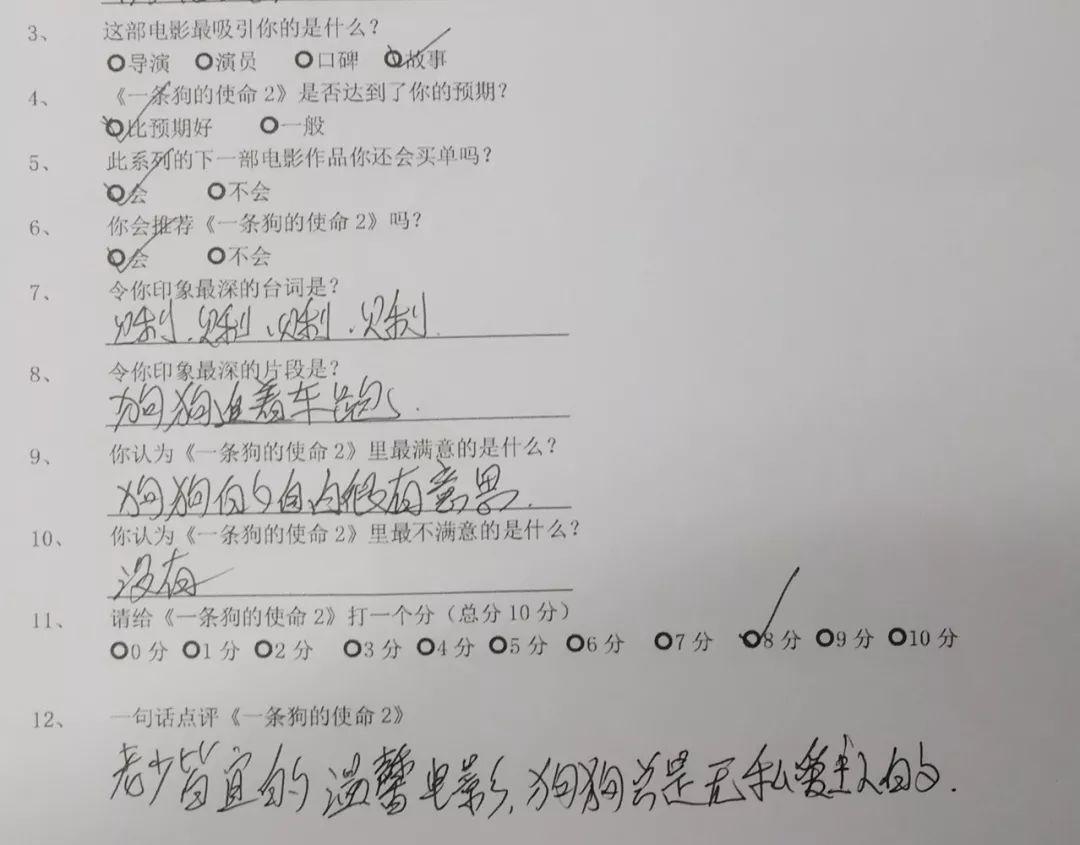 3、 这部电影最吸引你的是什么？
导演 演员 口碑 故事
4、 《一条狗的使命 2》是否达到了你的预期？
比预期好 一般
5、 此系列的下一部电影作品你还会买单吗？
会 不会
6、 你会推荐《一条狗的使命 2》吗？
会 不会
7、 令你印象最深的台词是？
贝利.贝利.贝利.贝利.
8、 令你印象最深的片段是？
狗狗追着车跑.
9、 你认为《一条狗的使命 2》里最满意的是什么？
狗狗的独白很有意思.
10、 你认为《一条狗的使命 2》里最不满意的是什么？
没有
11、 请给《一条狗的使命 2》打一个分（总分 10 分）
0 分 1 分 2 分 3 分 4 分 5 分 6 分 7 分 8 分 9 分 10 分
12、 一句话点评《一条狗的使命 2》
老少皆宜的温馨电影,狗狗总是无私爱主人的.